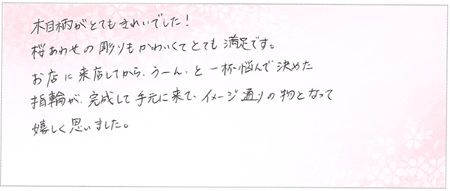 木目柄がとてもきれいでした！
桜あわせの彫りもかわいくてとても満足です。
お店に来店してから、うーん、と一杯悩んで決めた
指輪が、完成して手元に来て、イメージ通りの物となって
嬉しく思いました。